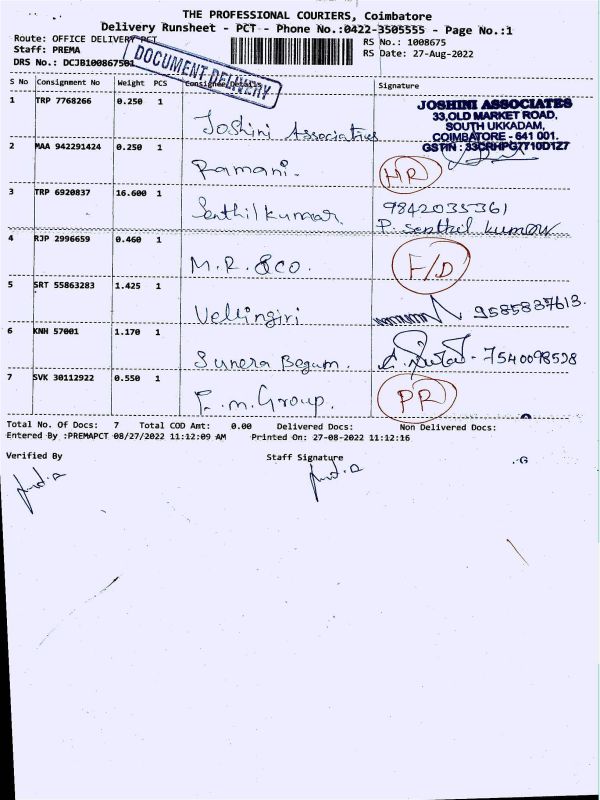 THE PROFESSIONAL COURIERS, Coimbatore
Delivery Runsheet - PCT - Phone No.:0422-3505555 - Page No.:1
Route: OFFICE DELIVERY-PCT
RS No.: 1008675
Staff: PREMA
RS Date: 27-Aug-2022
DRS No.: DCJB100867501
DOCUMENT DELIVERY
S No Consignment No Weight PCS Consignee Details Signature
1 TRP 7768266 0.250 1 Joshini Associaties
JOSHINI ASSOCIATES
33,OLD MARKET ROAD,
SOUTH UKKADAM,
COIMBATORE - 641 001.
GSTIN : 33CRHPG7710D1Z7
2 MAA 942291424 0.250 1 Ramani. HR
3 TRP 6920837 16.600 1 Senthilkumar 9842035361
P. Senthil kumar
4 RJP 2996659 0.460 1 M.R. &co. F/D
5 SRT 55863283 1.425 1 Vellingiri 9585837613.
6 KNH 57001 1.170 1 Sunera Begum. - 7540098598
7 SVK 30112922 0.550 1 F.m.Group. PR
Total No. Of Docs: 7 Total COD Amt: 0.00 Delivered Docs: Non Delivered Docs:
Entered By :PREMAPCT 08/27/2022 11:12:09 AM Printed On: 27-08-2022 11:12:16
Verified By Staff Signature